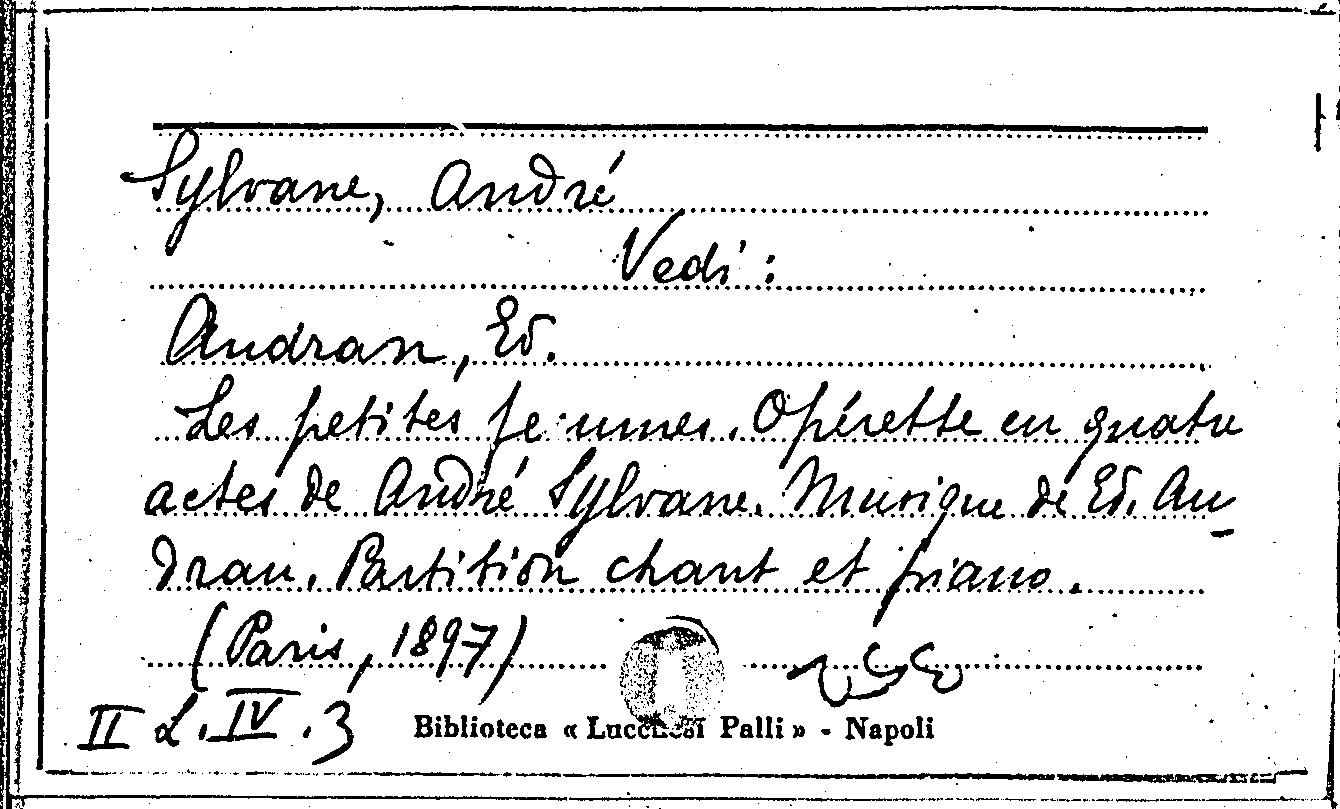 Sylvane, André
Vedi:
Audran, Ed.
Les petites femmes. Opérette en quatre
actes de André Sylvane. Musique de Ed. Au-
dran. Partition chant et piano.
(Paris, 1897)
II L. IV. 3
Biblioteca « Lucchesi Palli » - Napoli